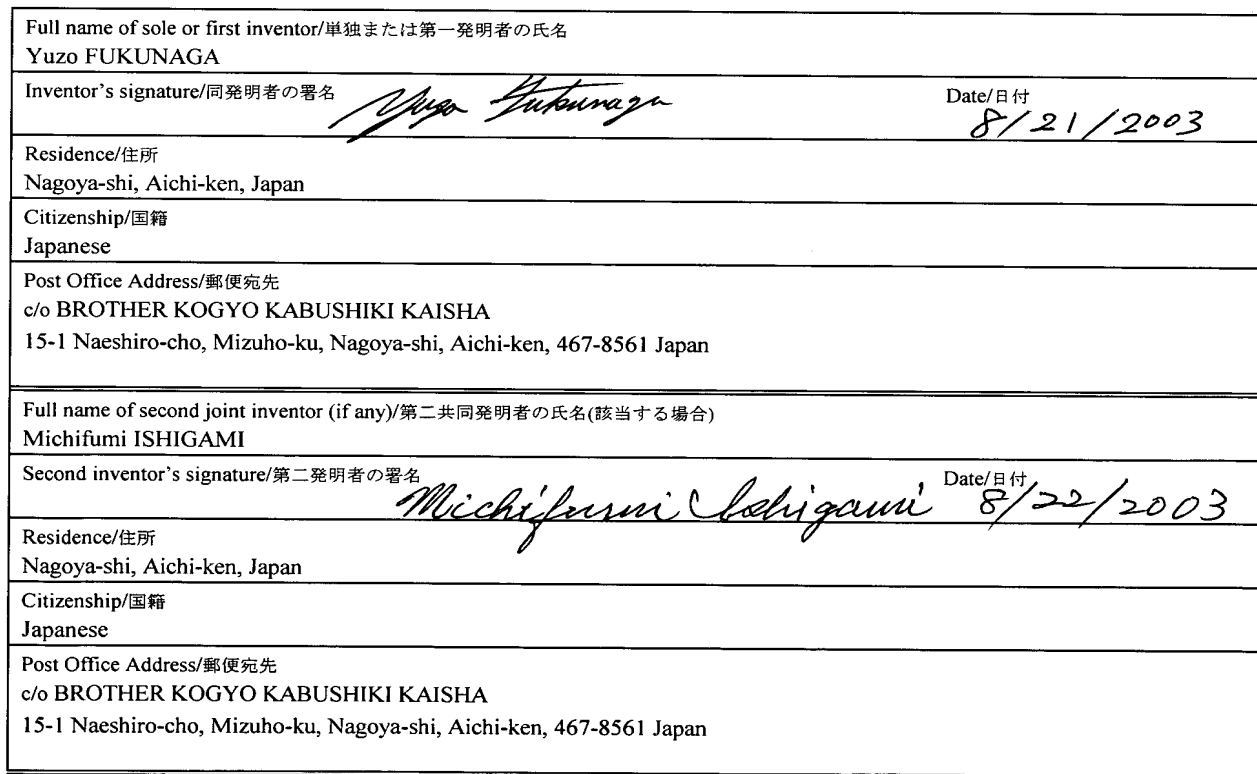 Full name of sole or first inventor/単独または第一発明者の氏名
Yuzo FUKUNAGA
Inventor's signature/同発明者の署名 Yuzo Fukunaga Date/日付 8/21/2003
Residence/住所
Nagoya-shi, Aichi-ken, Japan
Citizenship/国籍
Japanese
Post Office Address/郵便宛先
c/o BROTHER KOGYO KABUSHIKI KAISHA
15-1 Naeshiro-cho, Mizuho-ku, Nagoya-shi, Aichi-ken, 467-8561 Japan
Full name of second joint inventor (if any)/第二共同発明者の氏名(該当する場合)
Michifumi ISHIGAMI
Second inventor's signature/第二発明者の署名 Michifumi Ishigami Date/日付 8/22/2003
Residence/住所
Nagoya-shi, Aichi-ken, Japan
Citizenship/国籍
Japanese
Post Office Address/郵便宛先
c/o BROTHER KOGYO KABUSHIKI KAISHA
15-1 Naeshiro-cho, Mizuho-ku, Nagoya-shi, Aichi-ken, 467-8561 Japan